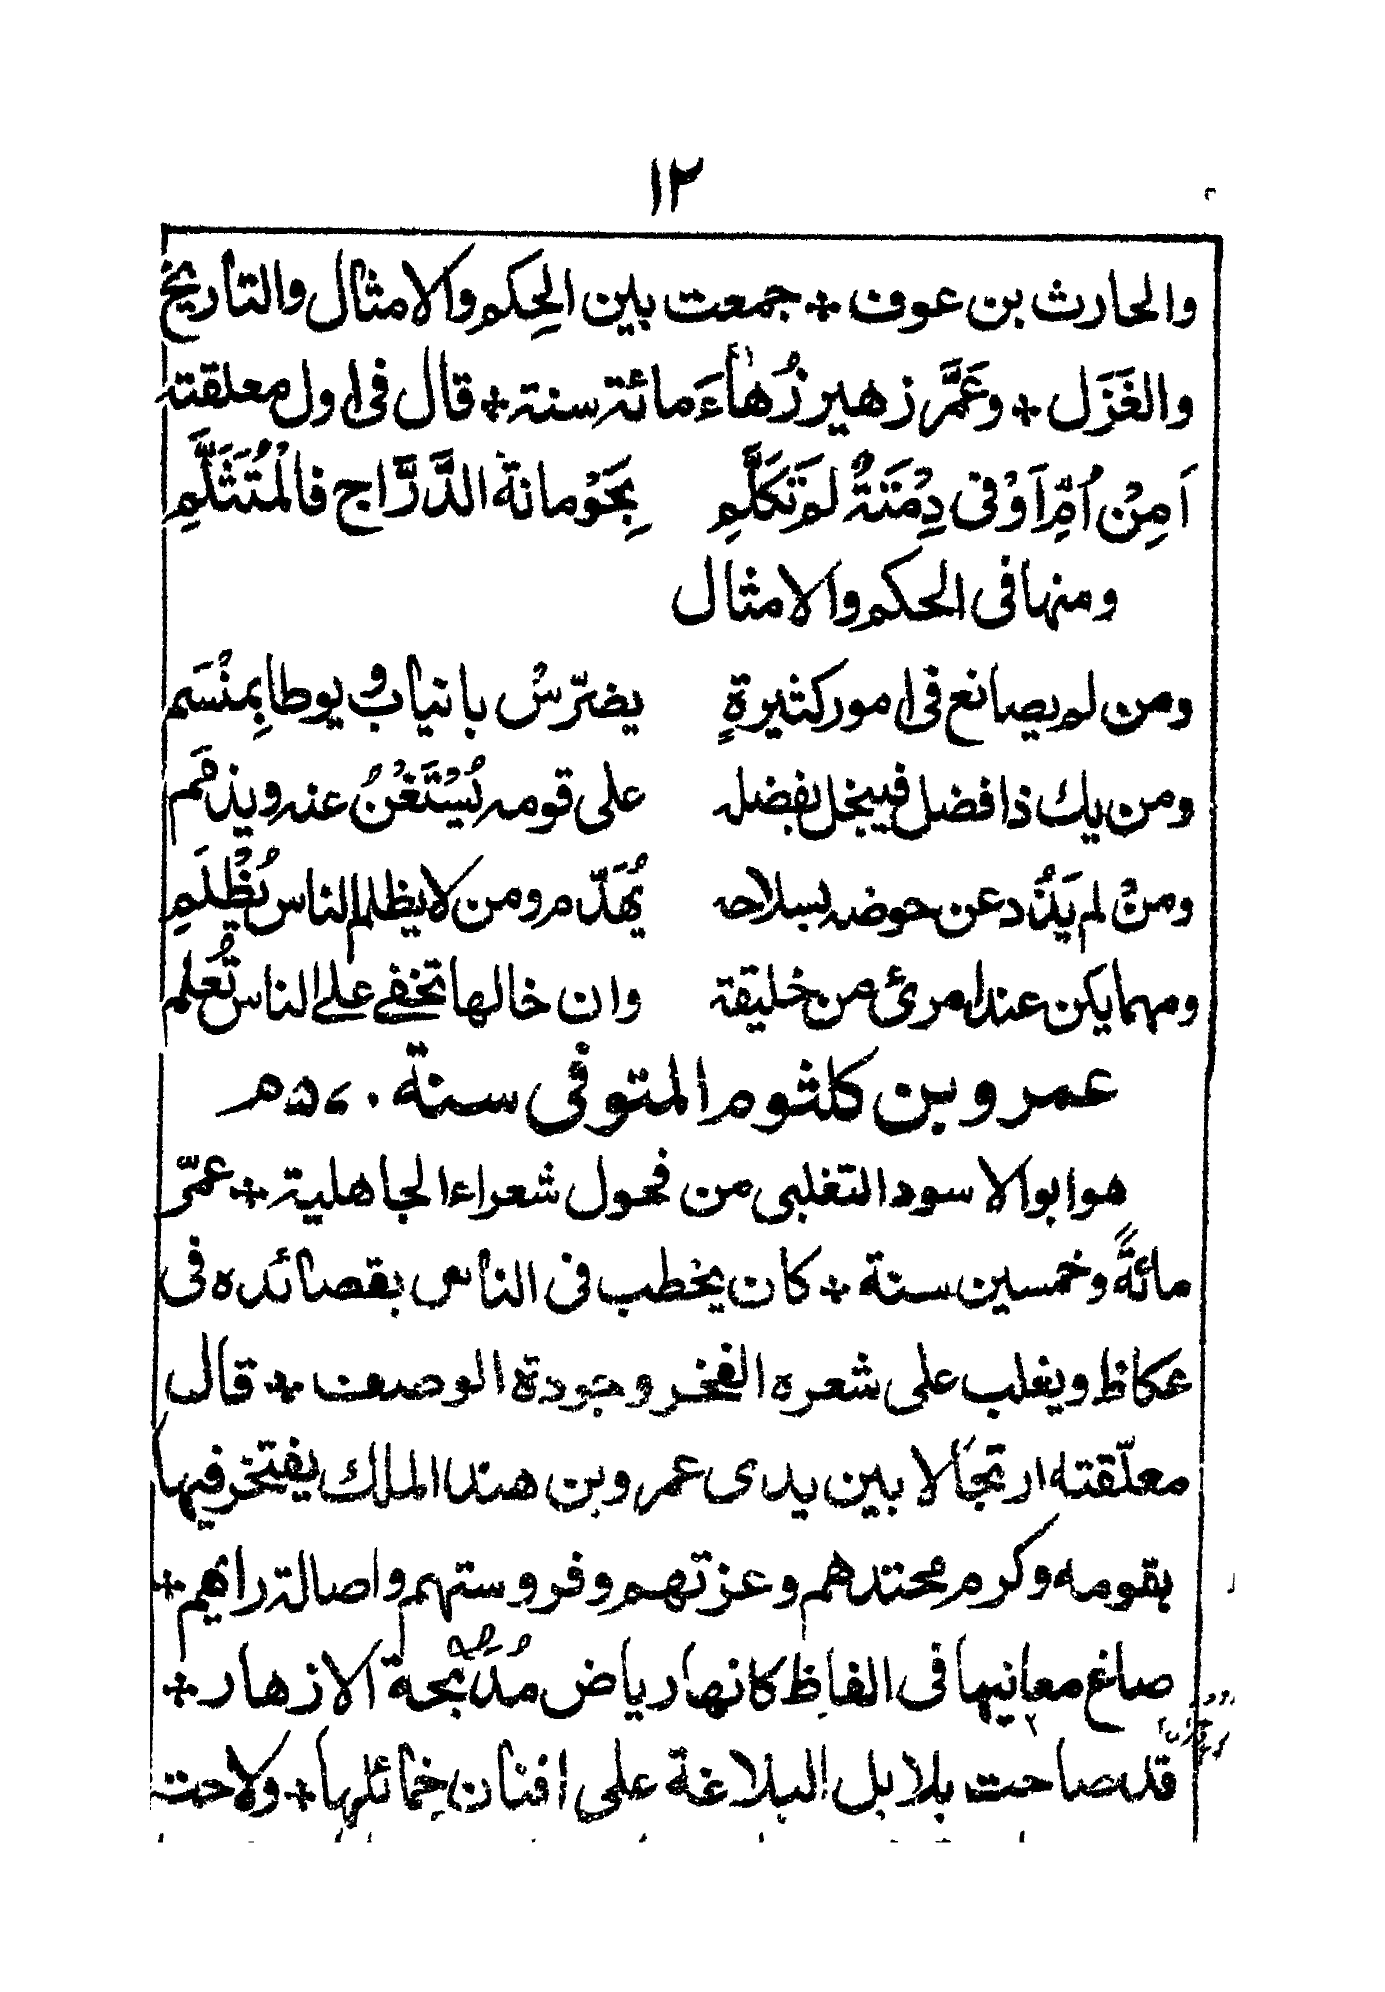 ١٢
والحارث بن عوف ٭ جمعت بين الحِكم والامثال والتأريخ
والغَزَل ٭ وعَمَّر زهير زُهاٰءَ مائة سنة ٭ قال فى اول معلقته
اَمِنْ اُمِّ اَوْفٰى دِمْنَةٌ لم تَكَلَّمِ بِحَوْمانة الدَّرَّاج فالْمُتَثَلَّمِ
ومنها فى الحكم والامثال
ومن لم يصانع فى امور كثيرةٍ يضرّسْ بانياب ويوطأ بِمنْسَم
ومن يك ذا فضل فيبخل بفضله على قومه يُسْتَغْنَ عنه ويذمَم
ومنْ لم يَذُد عن حوضه بسلاحه يُهَدّم ومن لا يظلم الناس يُظْلَمِ
ومهما يكن عند امرئ من خليقة وان خالها تخفے علے الناس تُعلم
عمرو بن كلثوم المتوفى سنة ٥٧٠م
هو ابو الاسود التغلبى من فحول شعراء الجاهلية ٭ عمّر
مائةً وخمسين سنة ٭ كان يخطب فى الناس بقصائده فى
عكاظ ويغلب على شعره الفخر وجودة الوصف ٭ قال
معلّقته ارتجالا بين يدى عمرو بن هند الملك يفتخر فيها
بقومه وكرم محتدهم وعزتهم وفروستهم واصالة رايهم ٭
صاغ معانيها فى الفاظ كانها رياض مُدَبَّجة الازهار ٭
قد صاحت بلابل البلاغة على افنان خمائلها ٭ ولاحت